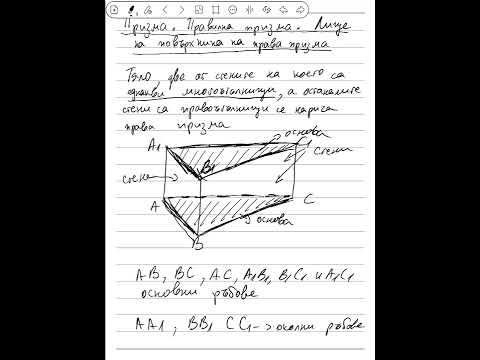 Призма. Правилна призма. Лице
на повърхнина на права призма
Тяло, две от стените на което са
еднакви многоъгълници, а останалите
стени са правоъгълници се нарича
права призма
основа
A1
B1
C1
стени
стени
A
C
основа
B
AB, BC, AC, A1B1, B1C1 и A1C1
основни ръбове
AA1, BB1 CC1 -> околни ръбове